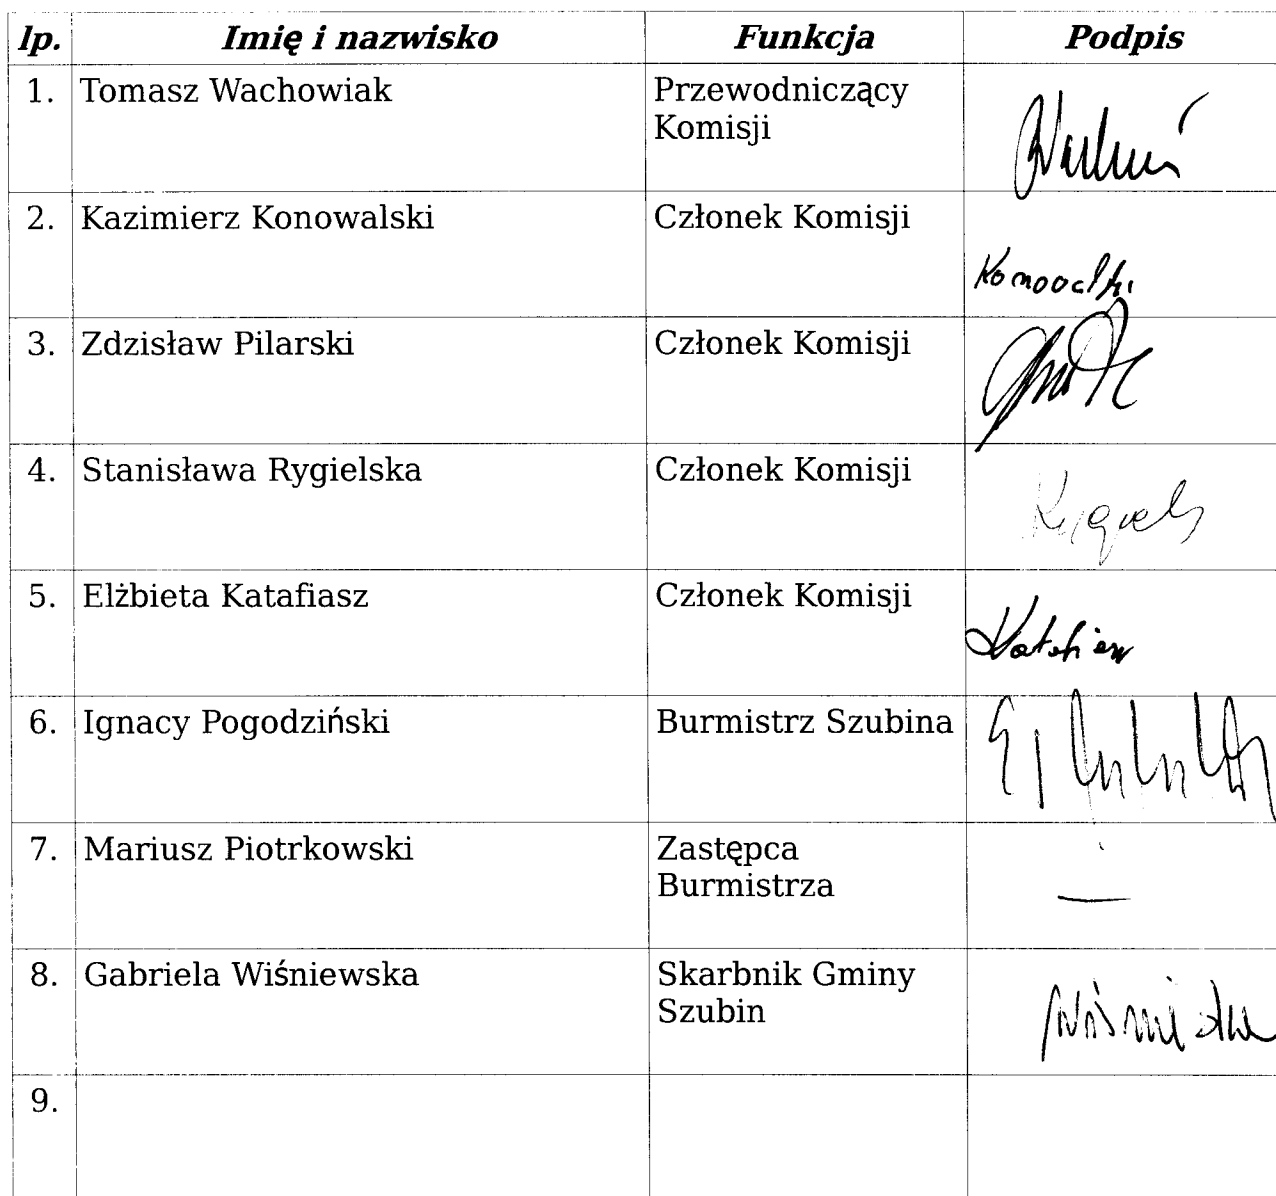 lp. Imię i nazwisko Funkcja Podpis
1. Tomasz Wachowiak Przewodniczący
Komisji
2. Kazimierz Konowalski Członek Komisji
3. Zdzisław Pilarski Członek Komisji
4. Stanisława Rygielska Członek Komisji
5. Elżbieta Katafiasz Członek Komisji
6. Ignacy Pogodziński Burmistrz Szubina
7. Mariusz Piotrkowski Zastępca
Burmistrza
—
8. Gabriela Wiśniewska Skarbnik Gminy
Szubin
9.